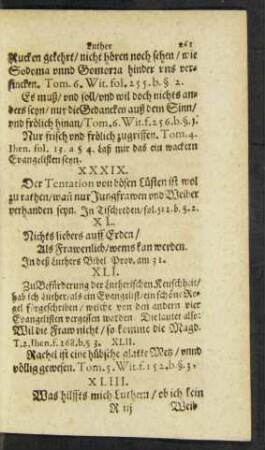 Luther 261
Rucken gekehrt/ nicht hören noch sehen/ wie
Sodoma vnnd Gomorra hinder vns ver-
sincken. Tom. 6. Wit. fol. 255. b. §. 2.
Es muß/ vnd soll/ vnd wil doch nichts an-
ders seyn/ nur die Gedancken auß dem Sinn/
vnd frölich hinan/ Tom. 6. Wit. f. 256. b. §. 3.
Nur frisch vnd frölich zugriffen. Tom. 4.
Ihen. fol. 15. a §. 4. Laß mir das ein wackern
Evangelisten seyn.
XXXIX.
Der Tentation von bösen Lüsten ist wol
zu rathen/ wañ nur Jungfrawen vnd Weiber
verhanden seyn. In Tischreden/ fol. 512. b. §. 2.
XL.
Nichts liebers auff Erden/
Als Frawenlieb/ wems kan werden.
In deß Luthers Bibel Prov. am 31.
XLI.
Zu Beförderung der Lutherischen Keuschheit/
hab ich Luther/ als ein Evangelist/ ein schöne Re-
gel fürgeschriben/ welche von den andern vier
Evangelisten vergessen worden. Die lautet also:
Wil die Fraw nicht/ so komme die Magd.
T. 2. Ihen. f. 168. b. § 3. XLII.
Rachel ist eine hübsche Metz/ vnnd
völlig gewesen. Tom. 5. Wit. f. 152. b. §. 3.
XLIII.
Was hilffts mich Luthern/ ob ich kein
R iij Weib